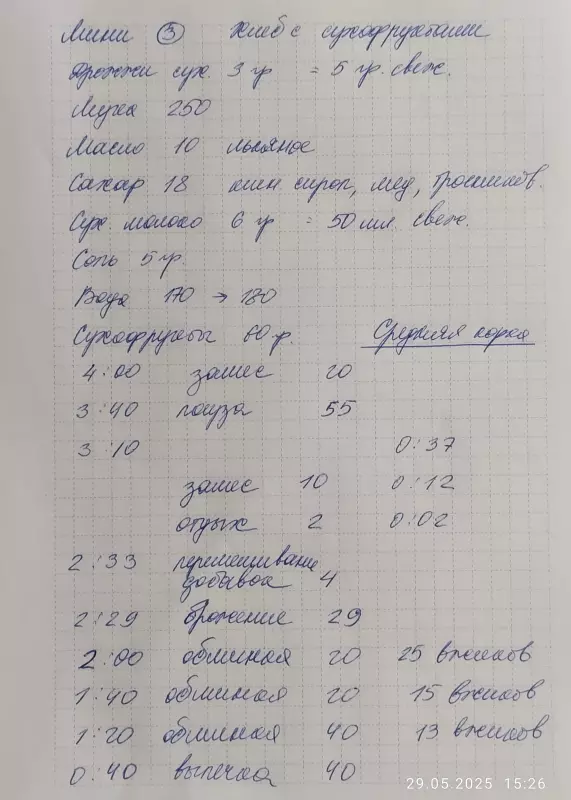 Мини ③ Хлеб с сухофруктами
Дрожжи сух. 3 гр = 5 гр. свеж.
Мука 250
Масло 10 льняное
Сахар 18 сироп, мед,
Сух. молоко 6 гр = 50 мл. свеж.
Соль 5 гр.
Вода 170 → 180
Сухофрукты 60 г. Средняя корка
4:00 замес 20
3:40 пауза 55
3:10 0:37
замес 10 0:12
отдых 2 0:02
2:33 перемешивание
добавок 4
2:29 брожение 29
2:00 обминая 20 25 вжиков
1:40 обминая 20 15 вжиков
1:20 обминая 40 13 вжиков
0:40 выпечка 40
29.05.2025 15:26